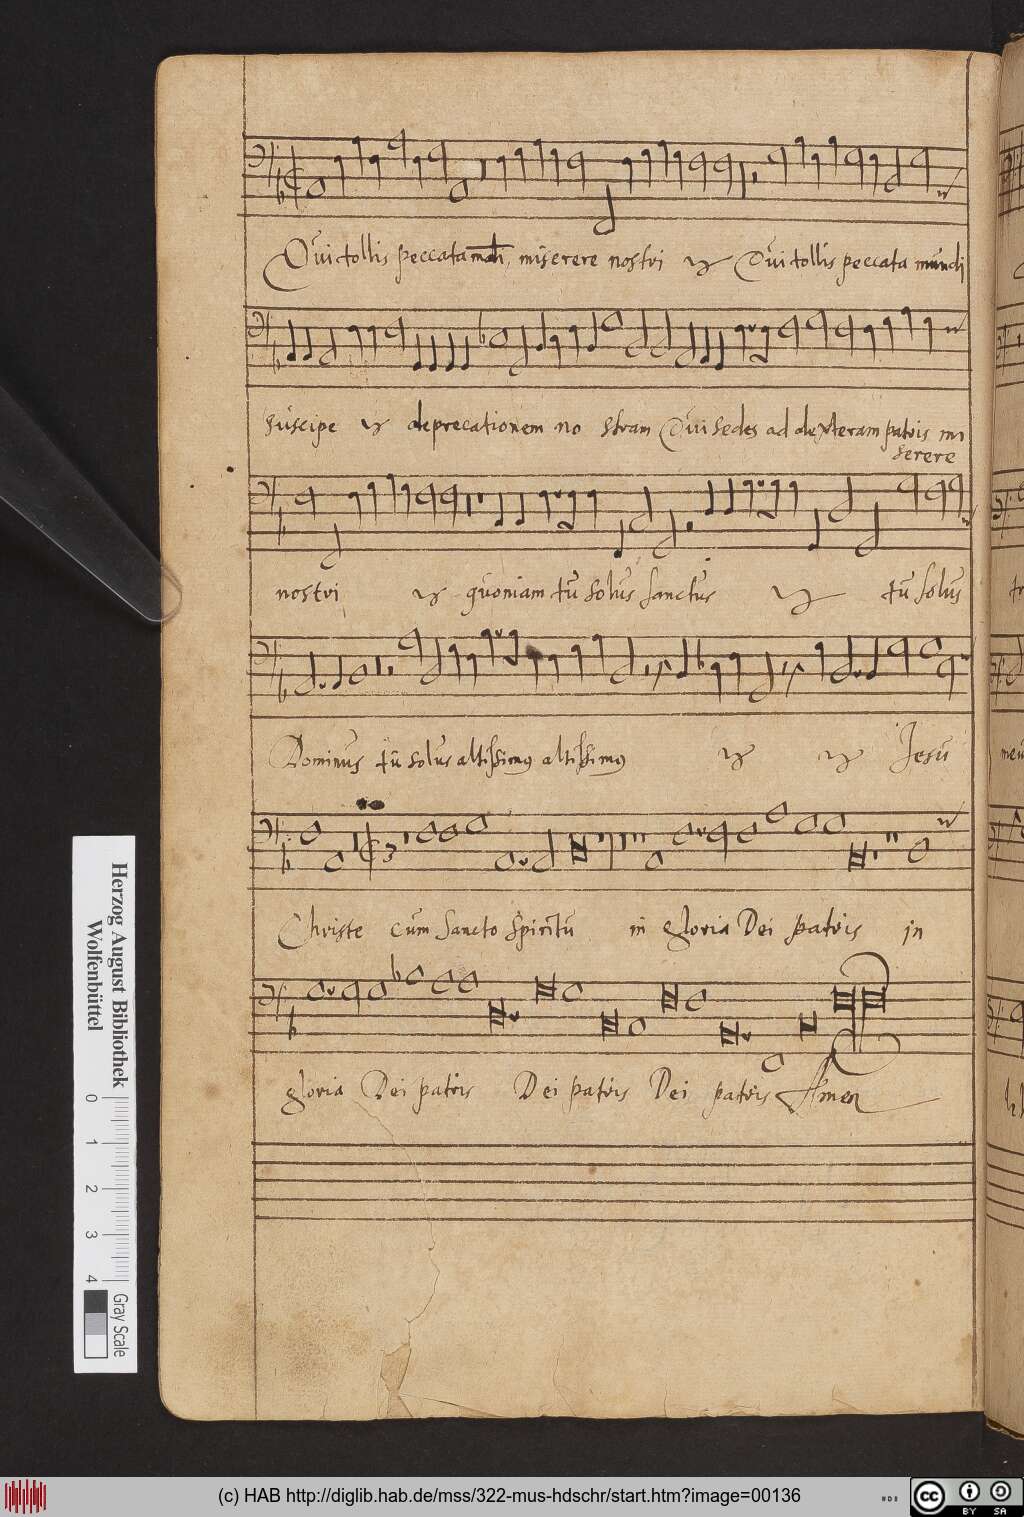 Qui tollis peccata mdi, miserere nostri ij Qui tollis peccata mundi
suscipe ij deprecationem no stram Qui sedes ad dexteram patris mi
serere
nostri ij quoniam tu solus sanctus ij tu solus
Dominus tu solus altissimus altissimus ij ij Jesu
3
Christe cum sancto spiritu in gloria Dei patris in
gloria Dei patris Dei patris Dei patris Amen
Herzog August Bibliothek
Wolfenbüttel
0 1 2 3 4
Gray Scale
(c) HAB http://diglib.hab.de/mss/322-mus-hdschr/start.htm?image=00136
cc BY SA